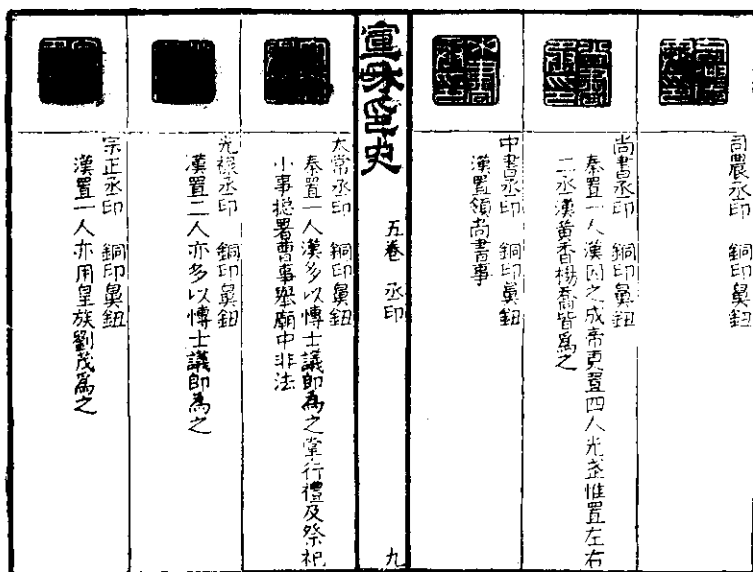 司農丞印 銅印鼻鈕
尚書丞印 銅印鼻鈕
秦置一人漢因之成帝更置四人光武惟置左右
二丞漢黃香楊喬皆爲之
中書丞印 銅印鼻鈕
漢置領尚書事
宣和印史 五卷 丞印 九
太常丞印 銅印鼻鈕
秦置一人漢多以愽士議郎為之掌行禮及祭祀
小事捴署曹事舉廟中非法
光祿丞印 銅印鼻鈕
漢置二人亦多以愽士議郎為之
宗正丞印 銅印鼻鈕
漢置一人亦用皇族劉茂爲之